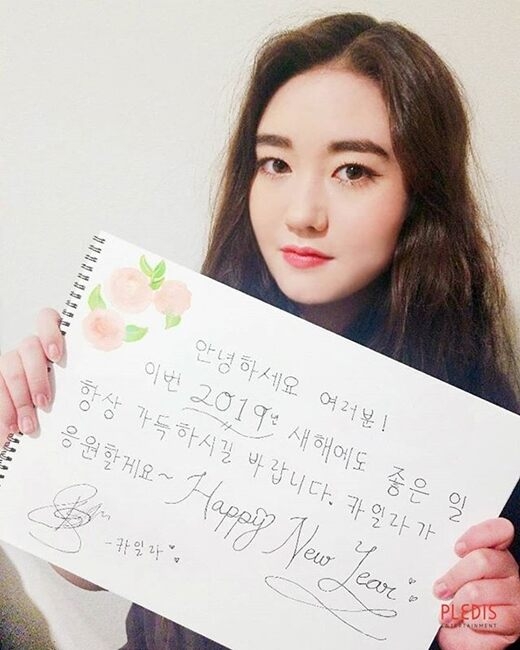 안녕하세요 여러분!
이번 2019년 새해에도 좋은 일
항상 가득하시길 바랍니다. 카일라가
응원할게요~ Happy New Year
-카일라
PLEDIS
ENTERTAINMENT